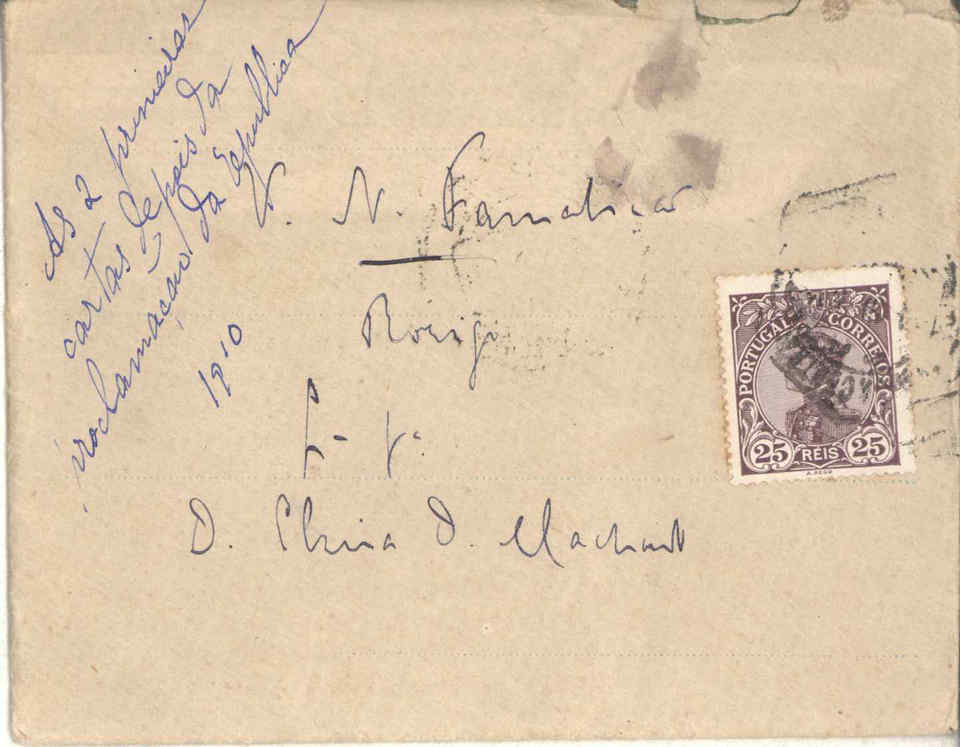 As 2 primeiras
cartas depois da
proclamação da Republica
1910
V. N. Famalicão
D. Elvira D. Machado
PORTUGAL CORREIOS
25 RÉIS 25